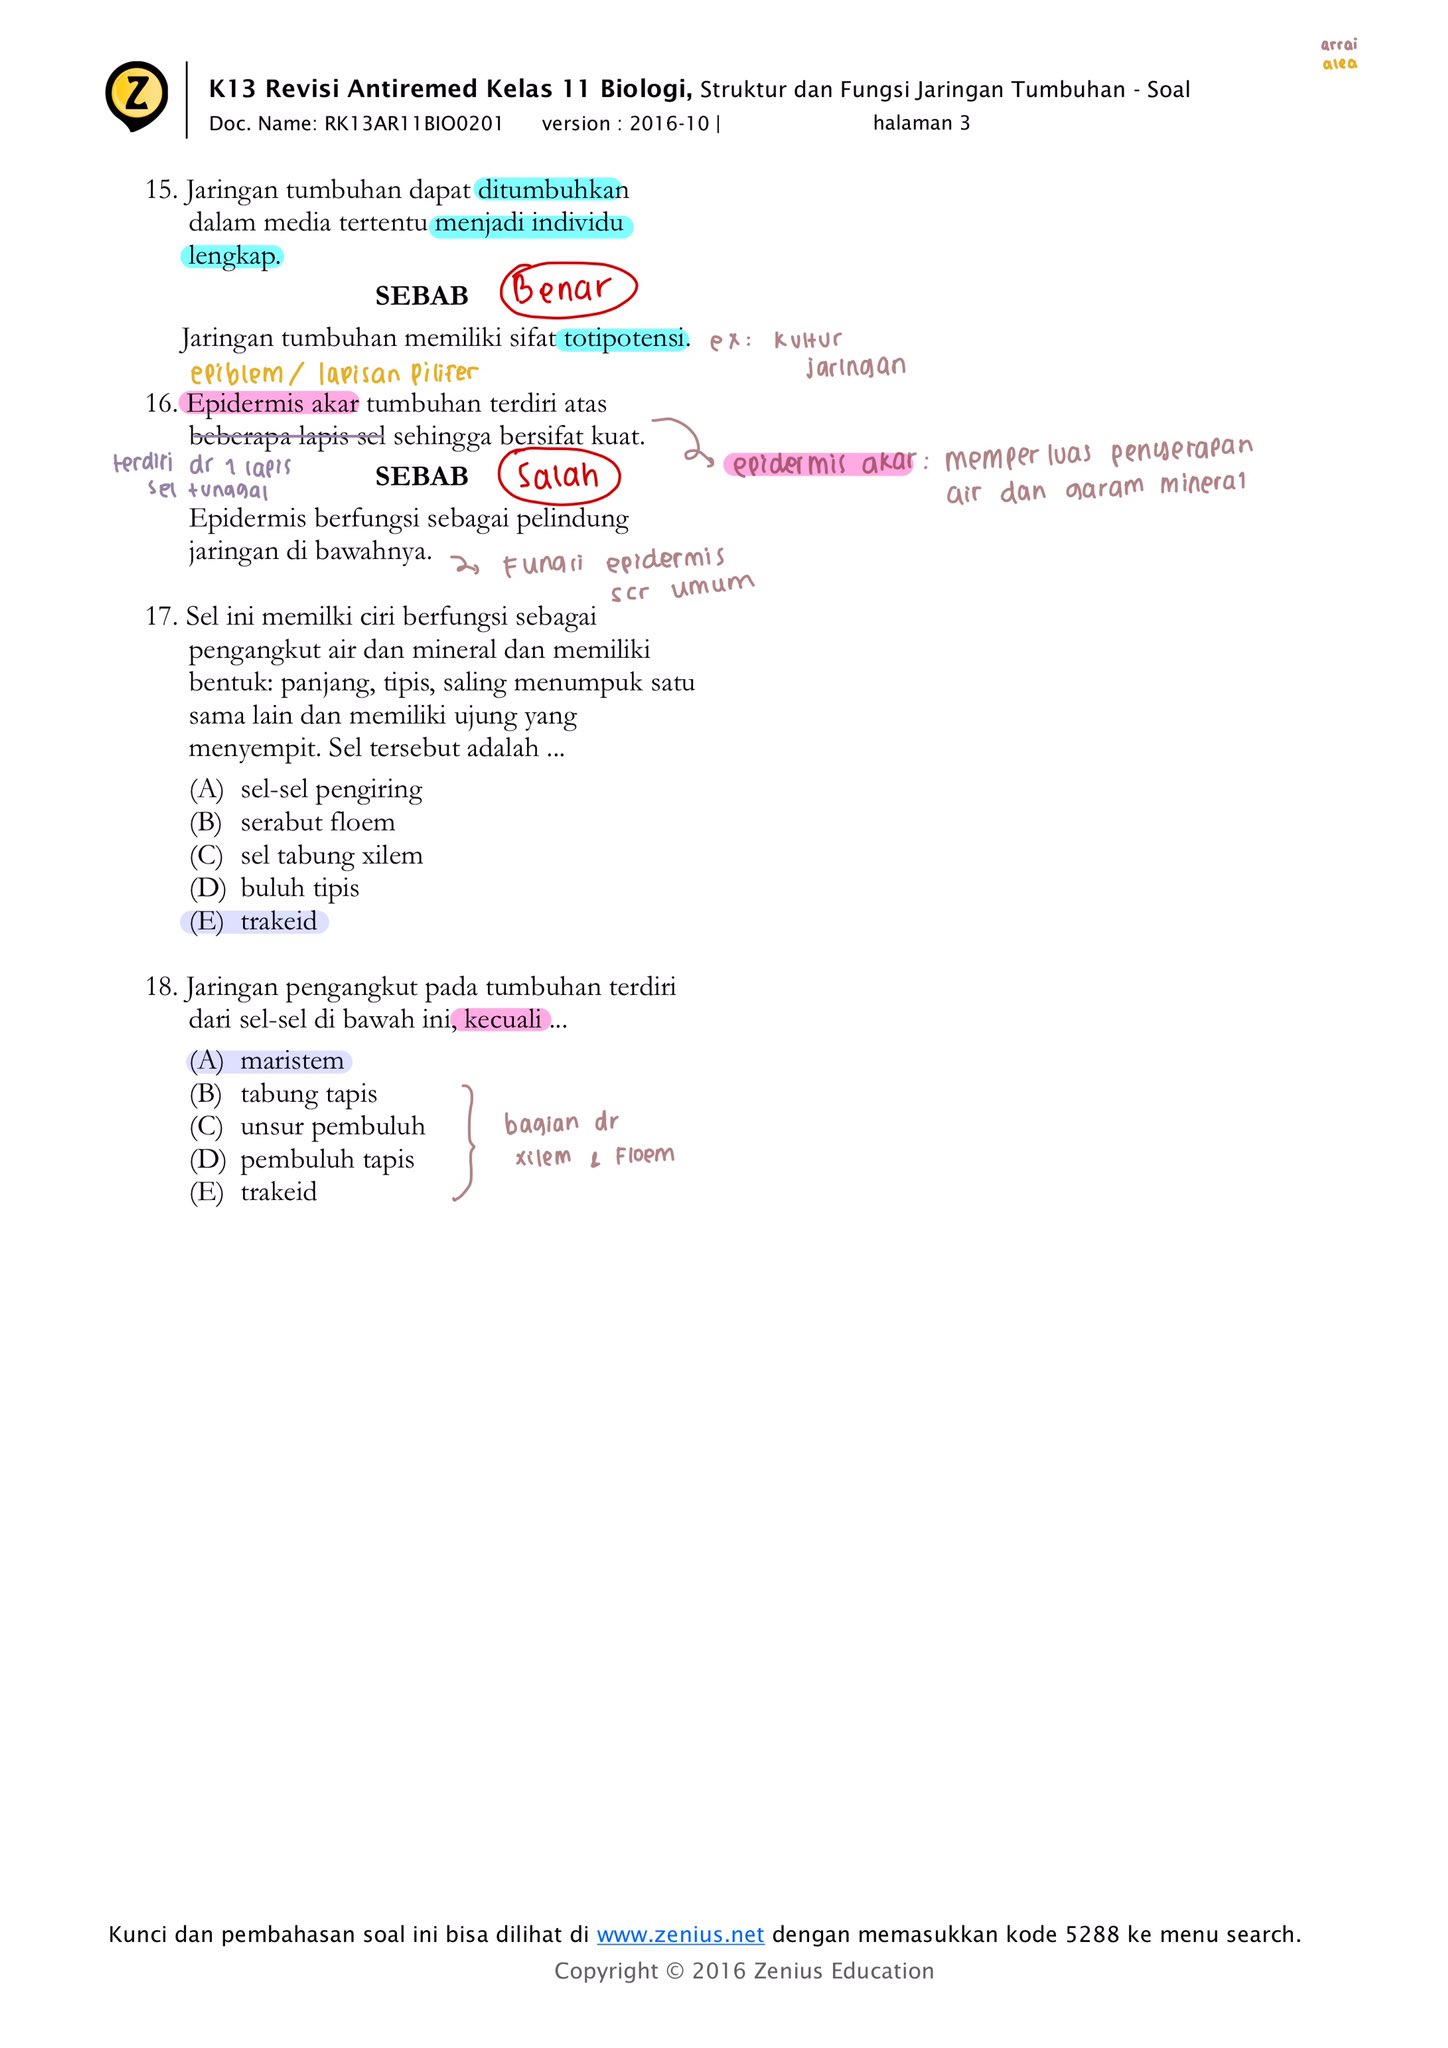 arrai
alea
Z
K13 Revisi Antiremed Kelas 11 Biologi, Struktur dan Fungsi Jaringan Tumbuhan - Soal
Doc. Name: RK13AR11BIO0201 version : 2016-10 | halaman 3
15. Jaringan tumbuhan dapat ditumbuhkan
dalam media tertentu menjadi individu
lengkap.
SEBAB Benar
Jaringan tumbuhan memiliki sifat totipotensi. ex: kultur
jaringan
epiblem / lapisan pilifer
16. Epidermis akar tumbuhan terdiri atas
beberapa lapis sel sehingga bersifat kuat.
terdiri dr 1 lapis
sel tunggal
SEBAB Salah
epidermis akar : memperluas penyerapan
air dan garam mineral
Epidermis berfungsi sebagai pelindung
jaringan di bawahnya.
Fungsi epidermis
scr umum
17. Sel ini memilki ciri berfungsi sebagai
pengangkut air dan mineral dan memiliki
bentuk: panjang, tipis, saling menumpuk satu
sama lain dan memiliki ujung yang
menyempit. Sel tersebut adalah ...
(A) sel-sel pengiring
(B) serabut floem
(C) sel tabung xilem
(D) buluh tipis
(E) trakeid
18. Jaringan pengangkut pada tumbuhan terdiri
dari sel-sel di bawah ini, kecuali ...
(A) maristem
(B) tabung tapis
(C) unsur pembuluh
(D) pembuluh tapis
(E) trakeid
bagian dr
xilem & Floem
Kunci dan pembahasan soal ini bisa dilihat di www.zenius.net dengan memasukkan kode 5288 ke menu search.
Copyright © 2016 Zenius Education